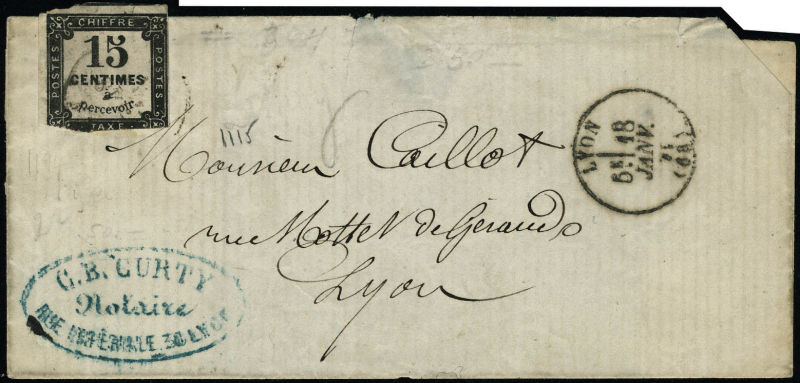 CHIFFRE
POSTES
15
CENTIMES
à
percevoir
POSTES
TAXE
1115
Monsieur Caillot
rue Mottet de Gérando
Lyon
LYON
5E
18
JANV.
71
(68)
C. B. CURTY
Notaire
RUE IMPÉRIALE 30 LYON